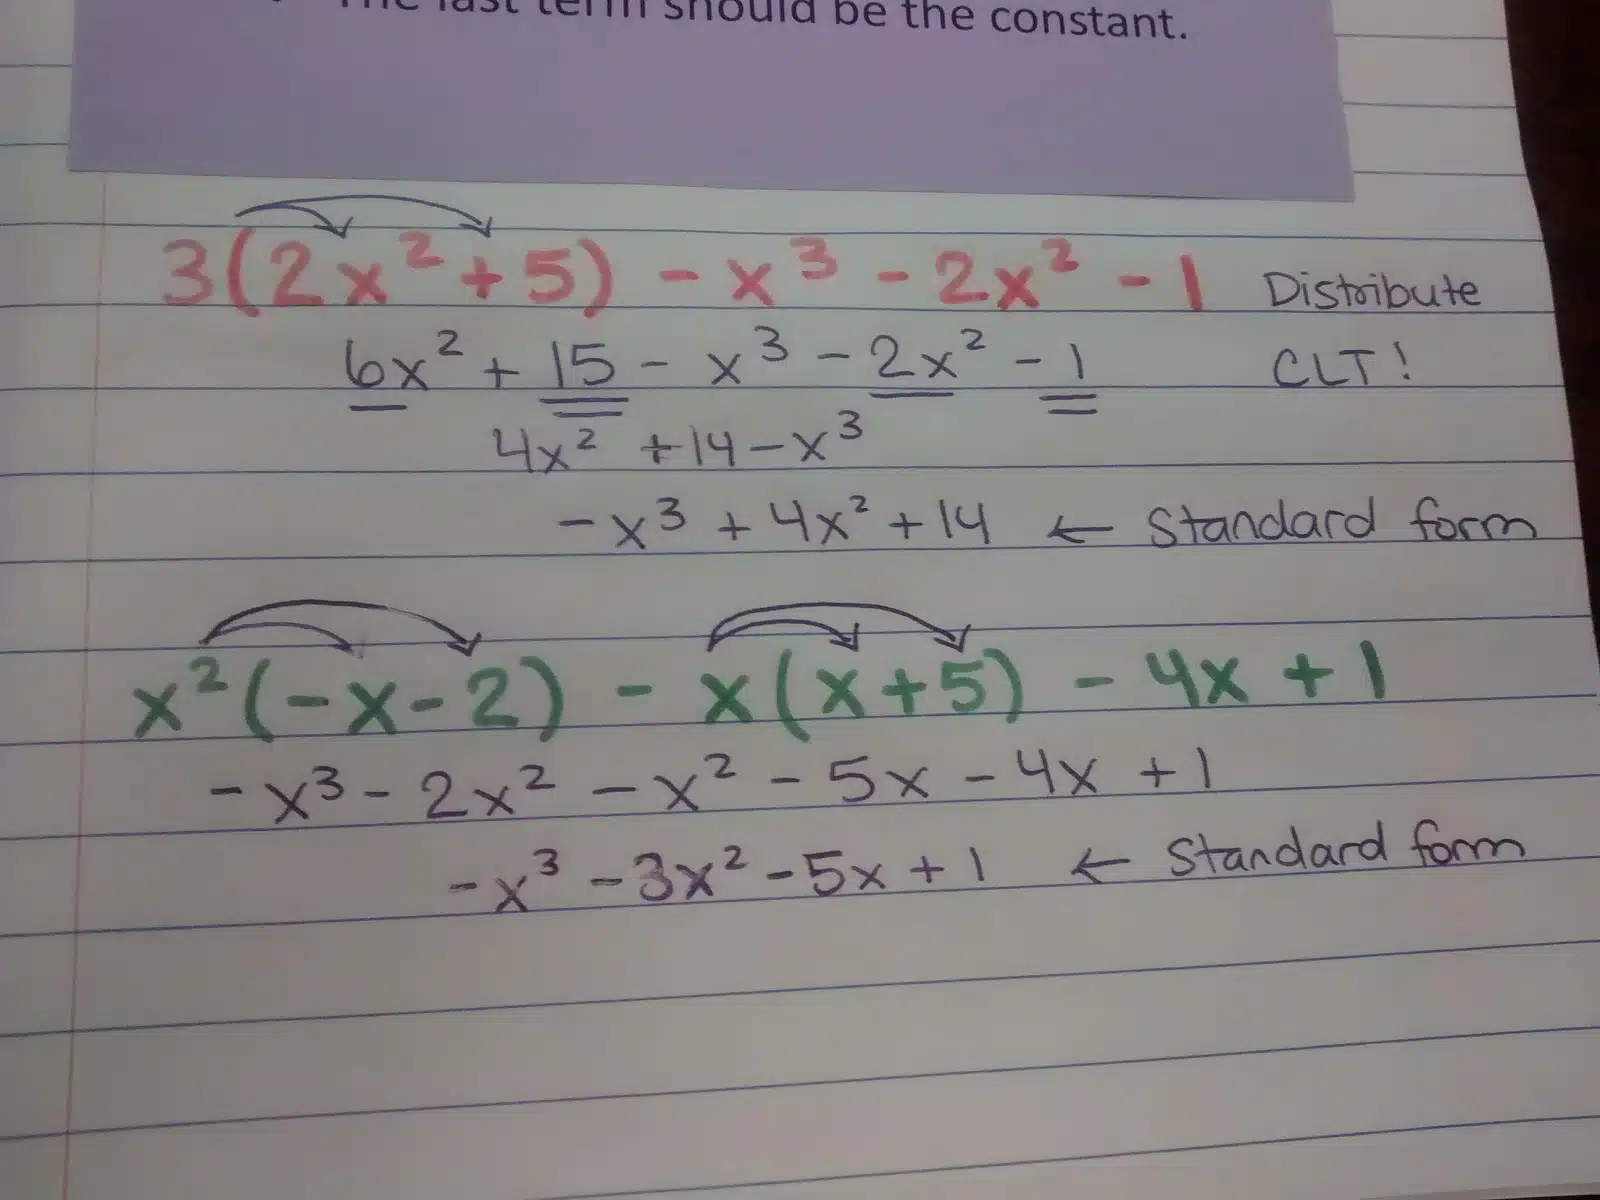 The last term should be the constant.
3(2x² + 5) - x³ - 2x² - 1 Distribute
6x² + 15 - x³ - 2x² - 1 CLT!
4x² + 14 - x³
-x³ + 4x² + 14 ← Standard form
x²(-x - 2) - x(x + 5) - 4x + 1
-x³ - 2x² - x² - 5x - 4x + 1
-x³ - 3x² - 5x + 1 ← Standard form